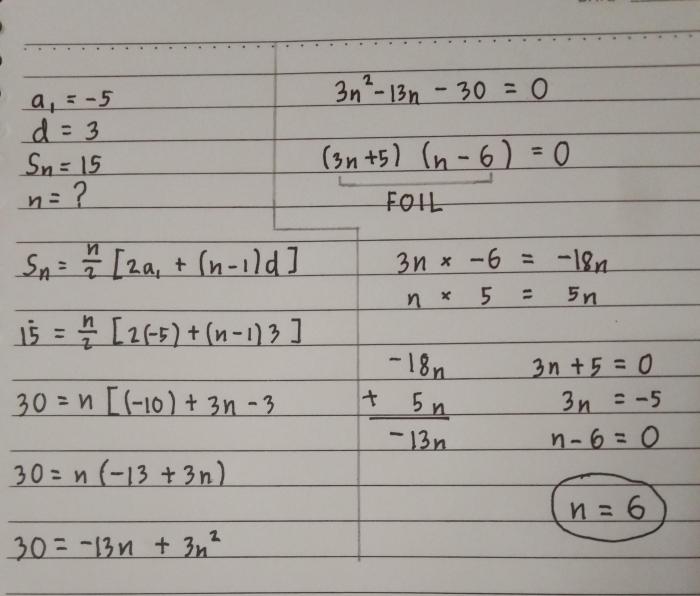 a₁ = -5
d = 3
Sn = 15
n = ?
Sn = n/2 [2a₁ + (n-1)d]
15 = n/2 [2(-5) + (n-1)3]
30 = n [(-10) + 3n - 3
30 = n (-13 + 3n)
30 = -13n + 3n²
3n² - 13n - 30 = 0
(3n+5) (n-6) = 0
FOIL
3n × -6 = -18n
n × 5 = 5n
-18n
+ 5n
-13n
3n + 5 = 0
3n = -5
n - 6 = 0
n = 6